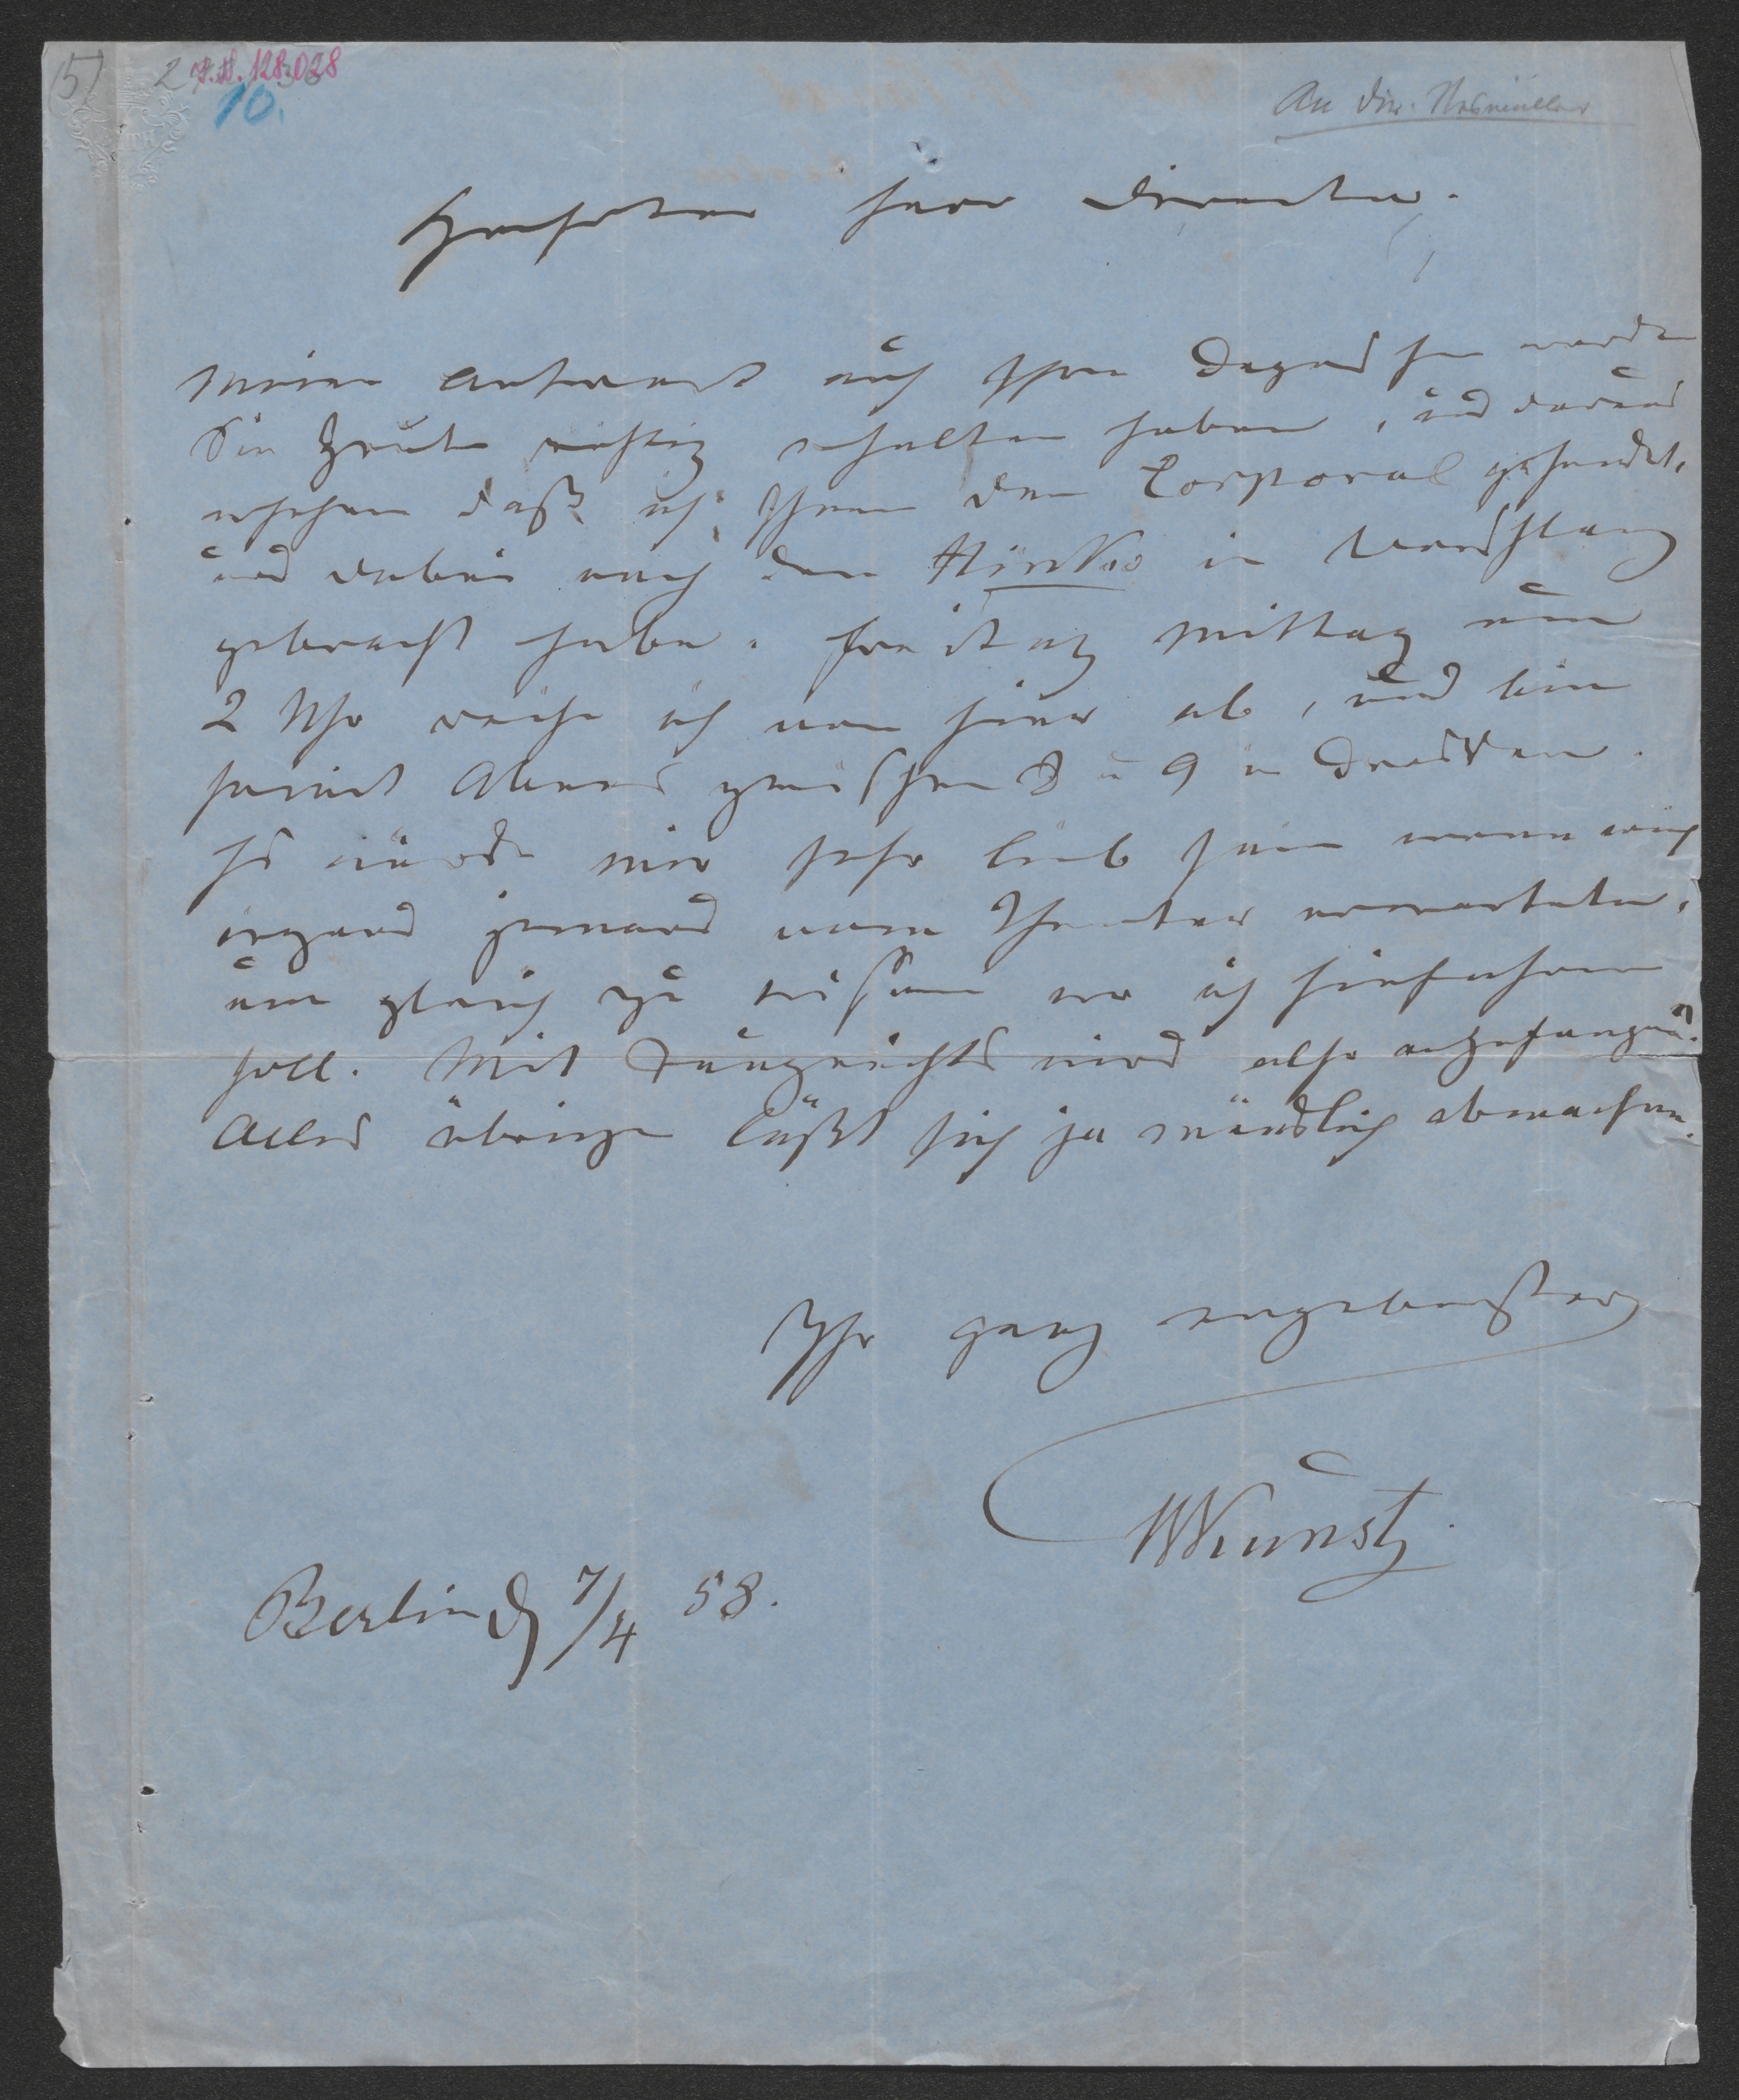 (5)
2 I.N. 128.028
10.
An Dir. Nesmüller
Geehrter Herr Director.
Meine Antwort auf Ihre Depesche werden
Sie heute richtig erhalten haben, und daraus
ersehen daß ich Ihnen den Corporal gesendet,
und dabei auch den Hinko in Vorschlag
gebracht habe. Freitag Mittag um
2 Uhr reise ich von hier ab, und bin
somit Abends zwischen 8 u 9 in Dresden.
Es würde mir sehr lieb sein wenn mich
irgend jemand vom Theater erwartete,
um gleich zu wissen wo ich hinfahren
soll. Mit wird also angefangen.
Alles übrige läßt sich ja mündlich abmachen.
Ihr ganz ergebenster
WKunst
Berlin d 7/4 58.